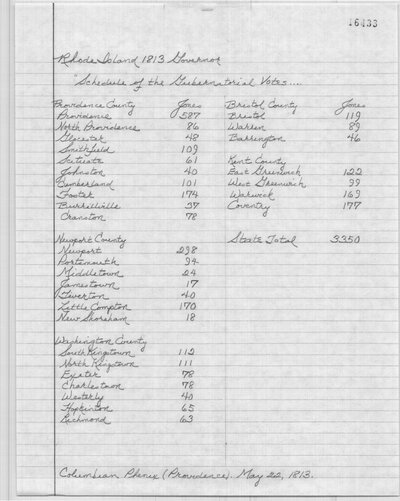 16433
Rhode Island 1813 Governor
"Schedule of the Gubernatorial Votes....
Providence County Jones Bristol County Jones
Providence 587 Bristol 119
North Providence 86 Warren 89
Glocester 48 Barrington 46
Smithfield 109
Scituate 61 Kent County
Johnston 40 East Greenwich 122
Cumberland 101 West Greenwich 99
Foster 174 Warwick 169
Burrillville 37 Coventry 177
Cranston 78
Newport County State Total 3350
Newport 298
Portsmouth 94
Middletown 24
Jamestown 17
Tiverton 40
Little Compton 170
New Shoreham 18
Washington County
South Kingstown 112
North Kingstown 111
Exeter 78
Charlestown 78
Westerly 40
Hopkinton 65
Richmond 63
Columbian Phenix (Providence). May 22, 1813.